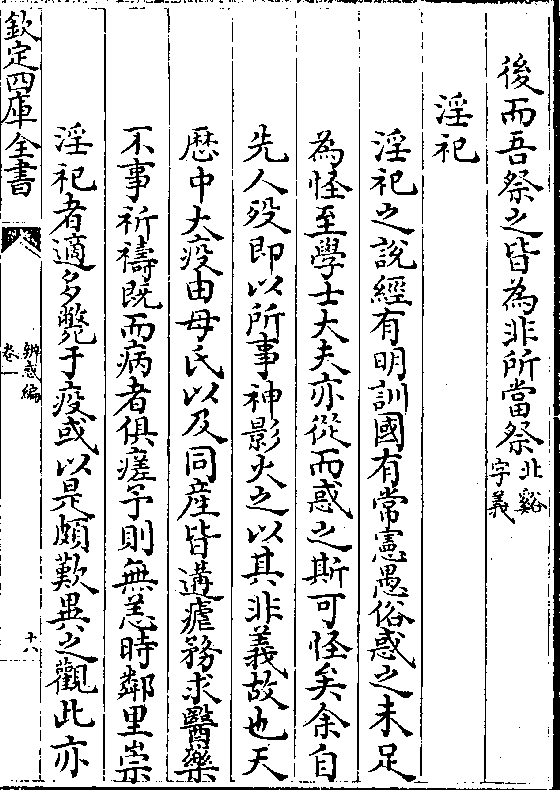 後而吾祭之皆為非所當祭北谿字義
淫祀
淫祀之說經有明訓國有常憲愚俗惑之未足
為怪至學士大夫亦從而惑之斯可怪矣余自
先人殁即以所事神影火之以其非義故也天
厯中大疫由母氏以及同産皆遘瘧務求醫藥
不事祈禱既而病者俱瘥予則無恙時鄰里崇
淫祀者適多斃于疫或以是頗歎異之觀此亦
欽定四庫全書
辨惑編
卷一
十六